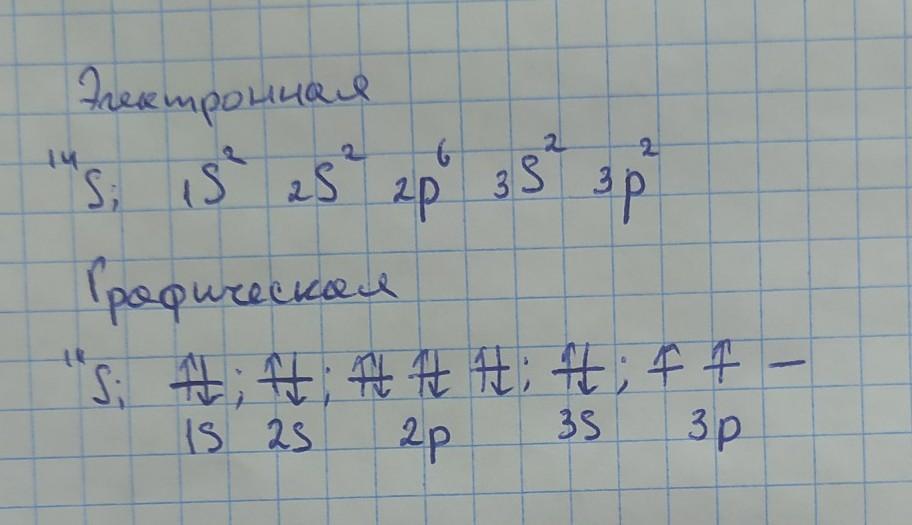 Электронная
¹⁴Si 1S² 2S² 2p⁶ 3S² 3p²
Графическая
¹⁴Si ⇅; ⇅; ⇅ ⇅ ⇅; ⇅; ↑ ↑ —
1S 2S 2p 3S 3p